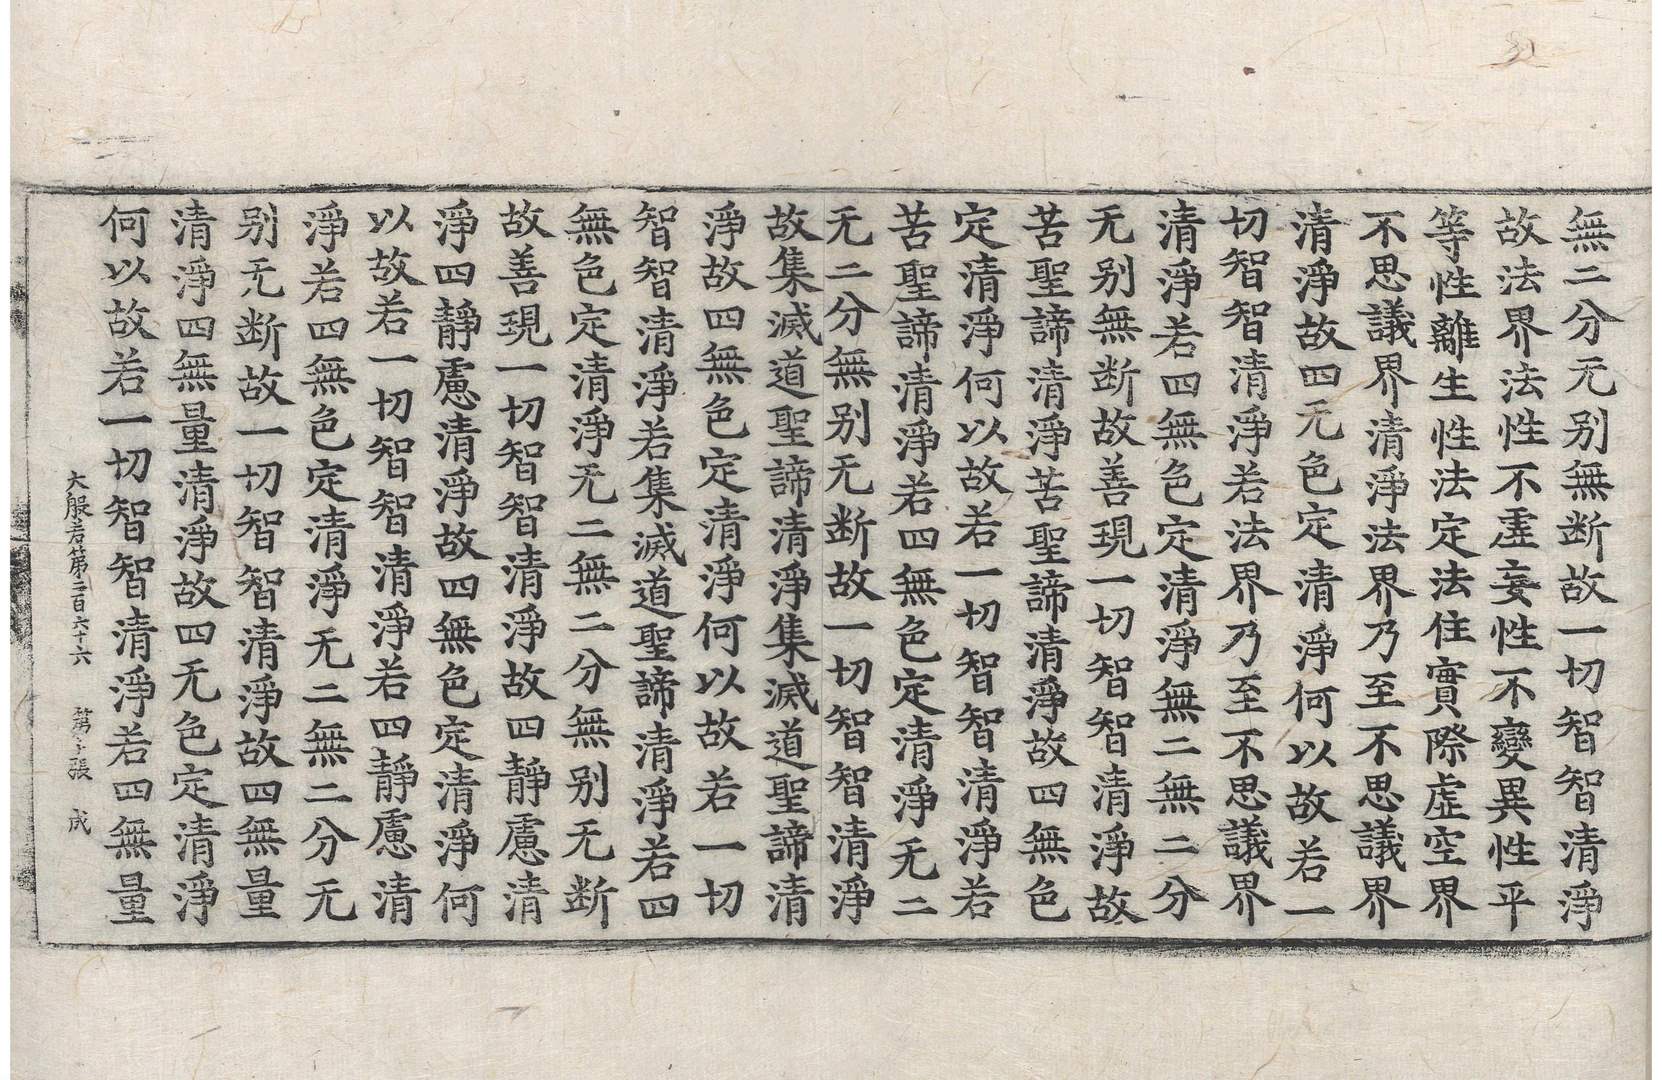 無二分无别無断故一切智智清淨
故法界法性不虛妄性不變異性平
等性離生性法定法住實際虛空界
不思議界清淨法界乃至不思議界
清淨故四无色定清淨何以故若一
切智智清淨若法界乃至不思議界
清淨若四無色定清淨無二無二分
无别無断故善現一切智智清淨故
苦聖諦清淨苦聖諦清淨故四無色
定清淨何以故若一切智智清淨若
苦聖諦清淨若四無色定清淨无二
无二分無别无断故一切智智清淨
故集滅道聖諦清淨集滅道聖諦清
淨故四無色定清淨何以故若一切
智智清淨若集滅道聖諦清淨若四
無色定清淨无二無二分無别无断
故善現一切智智清淨故四靜慮清
淨四靜慮清淨故四無色定清淨何
以故若一切智智清淨若四靜慮清
淨若四無色定清淨无二無二分无
别无断故一切智智清淨故四無量
清淨四無量清淨故四无色定清淨
何以故若一切智智清淨若四無量
大般若第二百六十六 第 張 成